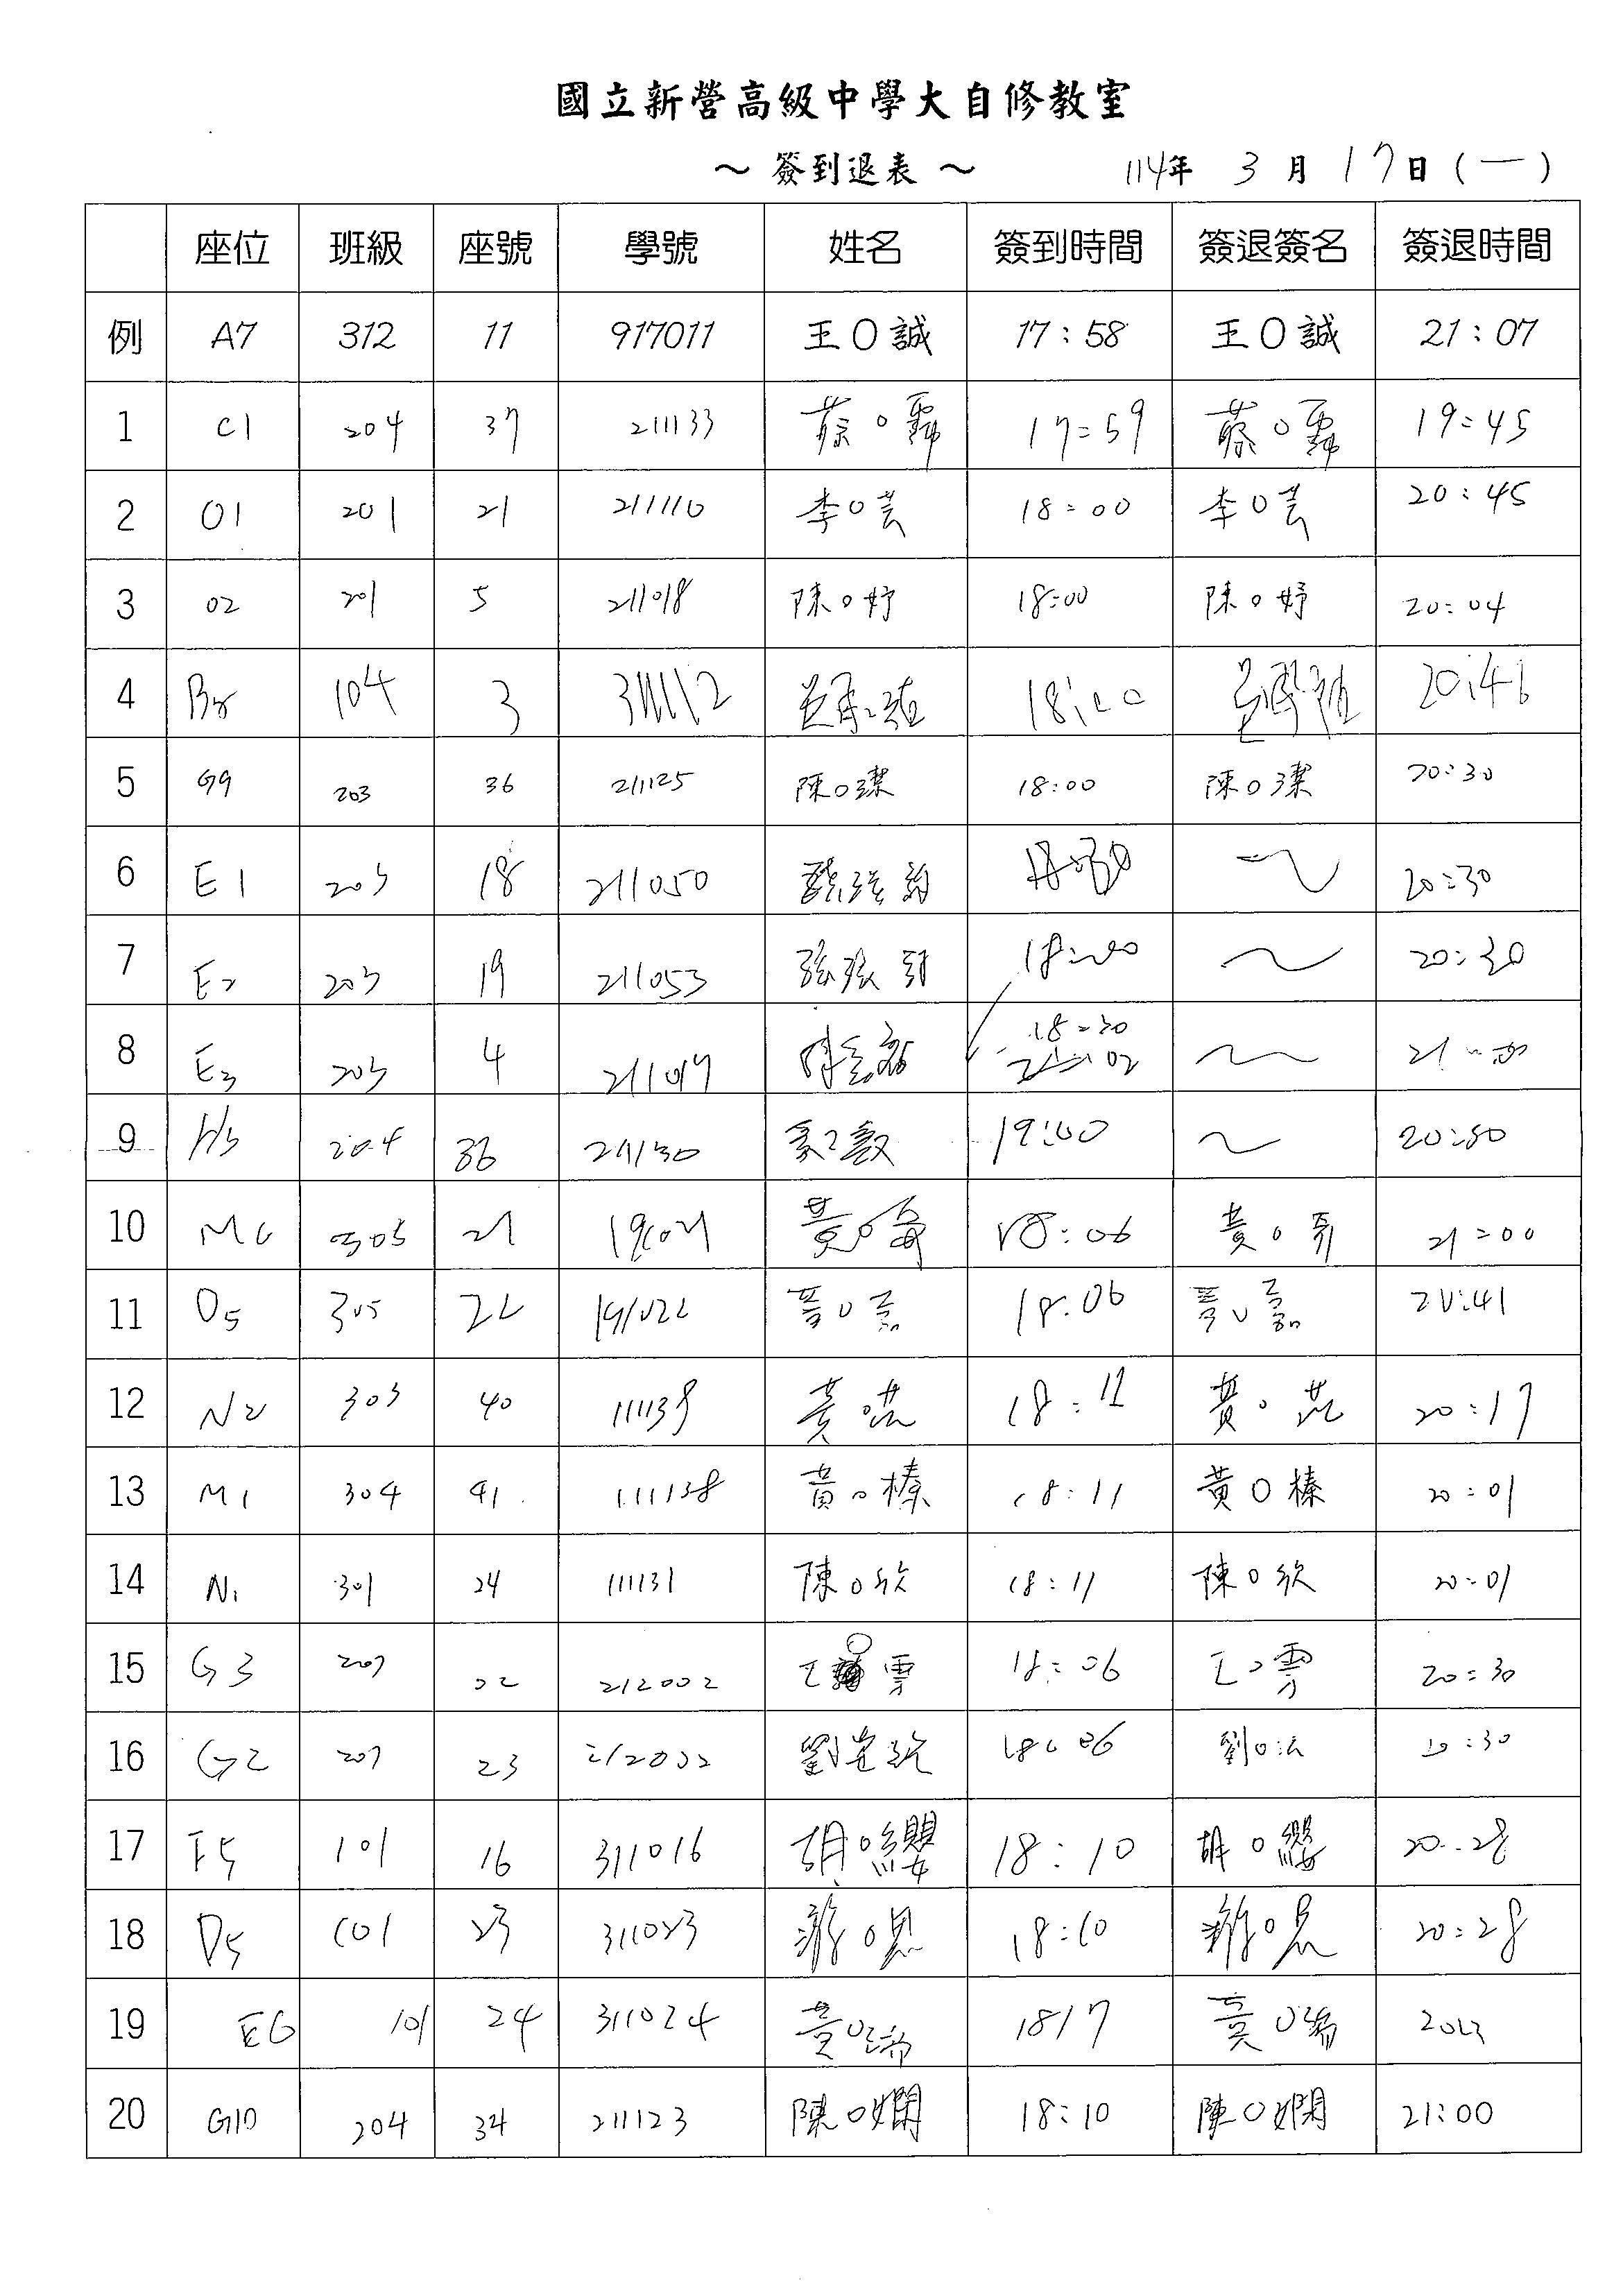 國立新營高級中學大自修教室
～ 簽到退表 ～ 114年 3 月 17日(一)
座位 班級 座號 學號 姓名 簽到時間 簽退簽名 簽退時間
例 A7 312 11 917011 王O誠 17:58 王O誠 21:07
1 C1 204 37 211133 蔡O霈 17:59 蔡O霈 19:45
2 O1 201 21 211110 李O芸 18:00 李O芸 20:45
3 02 201 5 211018 陳O妤 18:00 陳O妤 20:04
4 104 3 20:41
5 G9 203 36 211125 陳O潔 18:00 陳O潔 20:30
6 E1 203 18 211050 20:30
7 E2 203 19 211053 18:00 ～ 20:30
8 E3 203 4 18:30 ～
9 204 36 211130 19:00 ～ 20:50
10 305 21 黃O 18:06 黃O 21:00
11 O5 305 22 191022 18:06 20:41
12 N2 303 40 111139 黃 18:12 黃O 20:17
13 M1 304 41 111138 黃O榛 18:11 黃O榛 20:01
14 N1 301 24 111131 陳O欣 18:11 陳O欣 20:01
15 G3 207 02 212002 王O雲 18:06 王O雲 20:30
16 G2 207 23 劉 18:06 劉O 20:30
17 F5 101 16 311016 胡O纓 18:10 胡O纓 20:28
18 D5 101 23 311023 游O恩 18:10 游O恩 20:28
19 E6 101 24 311024 黃O 1817 黃O
20 G10 204 34 211123 陳O嫻 18:10 陳O嫻 21:00